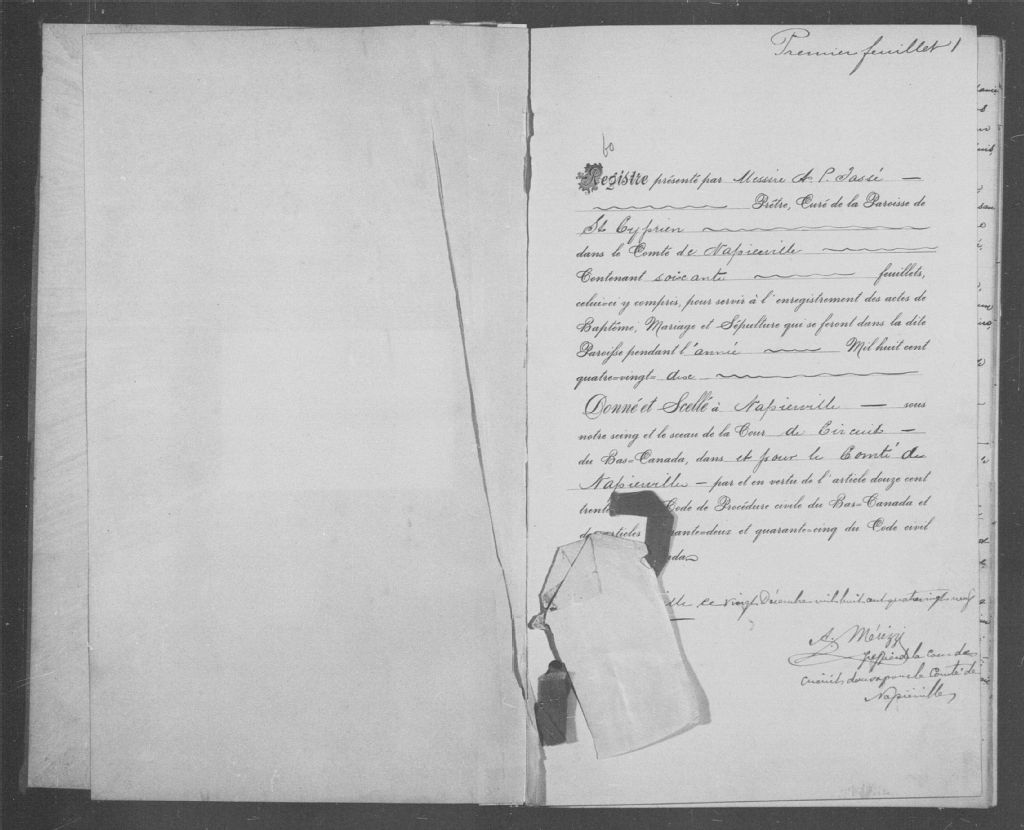 Premier feuillet 1
60
Registre présenté par Messire A. P. Tassé
Prêtre, Curé de la Paroisse de
St Cyprien
dans le Comté de Napierville
Contenant soixante feuillets,
celui-ci y compris, pour servir à l'enregistrement des actes de
Baptême, Mariage et Sépulture qui se feront dans la dite
Paroisse pendant l'année Mil huit cent
quatre-vingt-dix
Donné et Scellé à Napierville sous
notre seing et le sceau de la Cour de Circuit
du Bas-Canada, dans et pour le Comté de
Napierville par et en vertu de l'article douze cent
trente Code de Procédure civile du Bas-Canada et
articles rante-deux et quarante-cinq du Code civil
ada
lle ce vingt Décembre mil huit cent quatre vingt neuf
A.
la cour de
circuit dans et pour le Comté de
Napierville